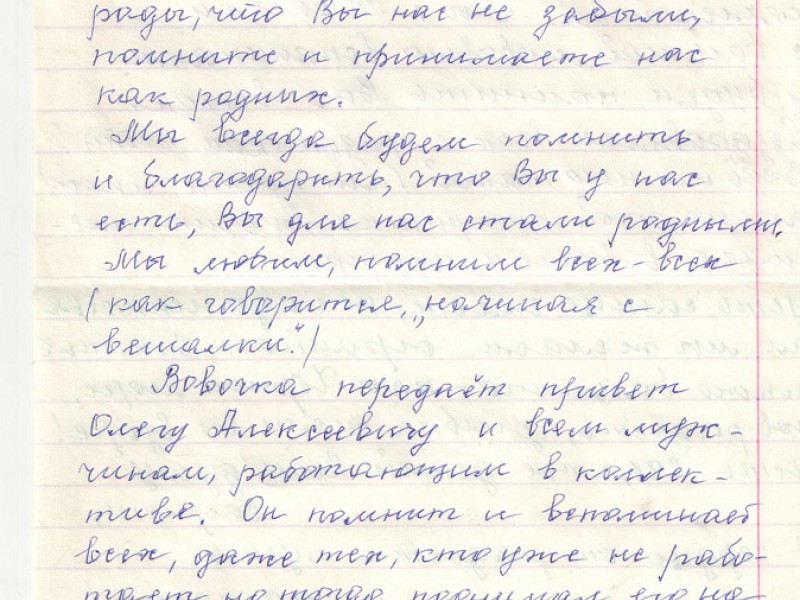 рады, что Вы нас не забыли,
помните и принимаете нас
как родных.
Мы всегда будем помнить
и благодарить, что Вы у нас
есть, Вы для нас стали родными.
Мы любим, помним всех-всех
(как говорится, „начиная с
вешалки".)
Вовочка передаёт привет
Олегу Алексеевичу и всем муж-
чинам, работающим в коллек-
тиве. Он помнит и вспоминает
всех, даже тех, кто уже не рабо-
тает, но тогда поднимал его на